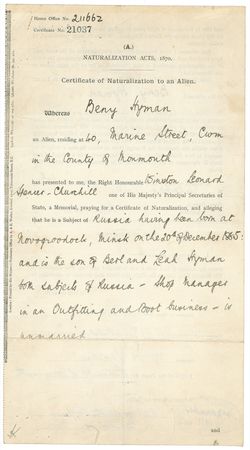 Home Office No. 211662
Certificate No. 21037
(A.)
NATURALIZATION ACTS, 1870.
Certificate of Naturalization to an Alien.
Whereas Beny Hyman
an Alien, residing at 40, Marine Street, Cwm
in the County of Monmouth
has presented to me, the Right Honourable Winston Leonard
Spencer-Churchill one of His Majesty's Principal Secretaries of
State, a Memorial, praying for a Certificate of Naturalization, and alleging
that he is a Subject of Russia having been born at
Novogroodock, Minsk on the 20th of December 1885:
and is the son of Berl and Leah Hyman
both subjects of Russia – Shop Manager
in an Outfitting and Boot business – is
unmarried
and